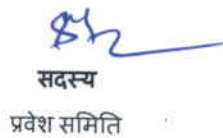 सदस्य
प्रवेश समिति